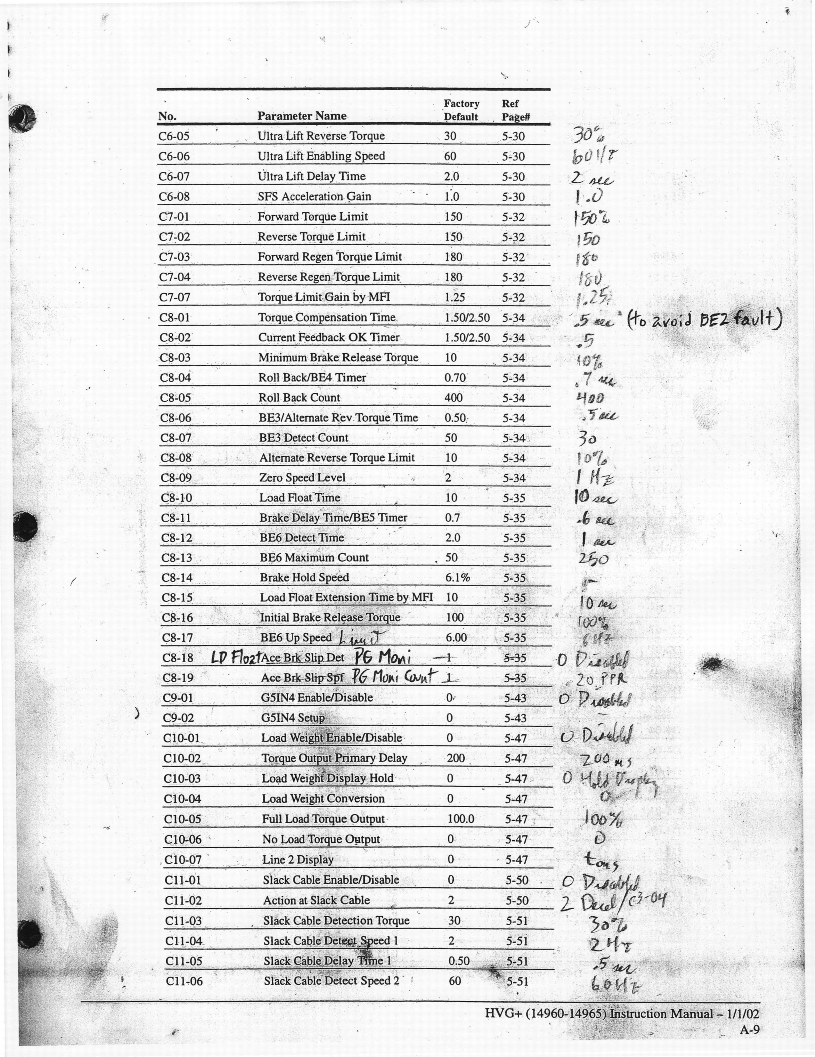 No. Parameter Name Factory Default Ref Page#
C6-05 Ultra Lift Reverse Torque 30 5-30 30%
C6-06 Ultra Lift Enabling Speed 60 5-30 60 Hz
C6-07 Ultra Lift Delay Time 2.0 5-30 2 sec
C6-08 SFS Acceleration Gain 1.0 5-30 1.0
C7-01 Forward Torque Limit 150 5-32 150%
C7-02 Reverse Torque Limit 150 5-32 150
C7-03 Forward Regen Torque Limit 180 5-32 180
C7-04 Reverse Regen Torque Limit 180 5-32 180
C7-07 Torque Limit Gain by MFI 1.25 5-32 1.25
C8-01 Torque Compensation Time 1.50/2.50 5-34 .5 sec (to avoid BE2 fault)
C8-02 Current Feedback OK Timer 1.50/2.50 5-34 .5
C8-03 Minimum Brake Release Torque 10 5-34 10%
C8-04 Roll Back/BE4 Timer 0.70 5-34 .7 sec
C8-05 Roll Back Count 400 5-34 400
C8-06 BE3/Alternate Rev Torque Time 0.50 5-34 .5 sec
C8-07 BE3 Detect Count 50 5-34 30
C8-08 Alternate Reverse Torque Limit 10 5-34 10%
C8-09 Zero Speed Level 2 5-34 1 Hz
C8-10 Load Float Time 10 5-35 10 sec
C8-11 Brake Delay Time/BE5 Timer 0.7 5-35 .6 sec
C8-12 BE6 Detect Time 2.0 5-35 1 sec
C8-13 BE6 Maximum Count 50 5-35 250
C8-14 Brake Hold Speed 6.1% 5-35
C8-15 Load Float Extension Time by MFI 10 5-35 10 sec
C8-16 Initial Brake Release Torque 100 5-35 100%
C8-17 BE6 Up Speed Limit 6.00 5-35 6 Hz
C8-18 LD Float Acc Brk Slip Det PG Moni 1 5-35 0 Disabled
C8-19 Acc Brk Slip Spf PG Moni Count 1 5-35 20 PPR
C9-01 G5IN4 Enable/Disable 0 5-43 0 Disabled
C9-02 G5IN4 Setup 0 5-43 –
C10-01 Load Weight Enable/Disable 0 5-47 0 Disabled
C10-02 Torque Output Primary Delay 200 5-47 200 ms
C10-03 Load Weight Display Hold 0 5-47 0 Hold Display
C10-04 Load Weight Conversion 0 5-47 0
C10-05 Full Load Torque Output 100.0 5-47 100%
C10-06 No Load Torque Output 0 5-47 0
C10-07 Line 2 Display 0 5-47 tons
C11-01 Slack Cable Enable/Disable 0 5-50 0 Disabled
C11-02 Action at Slack Cable 2 5-50 2 Decel/C3-04
C11-03 Slack Cable Detection Torque 30 5-51 30%
C11-04 Slack Cable Detect Speed 1 2 5-51 2 Hz
C11-05 Slack Cable Delay Time 1 0.50 5-51 .5 sec
C11-06 Slack Cable Detect Speed 2 60 5-51 60 Hz
HVG+ (14960-14965) Instruction Manual – 1/1/02
A-9